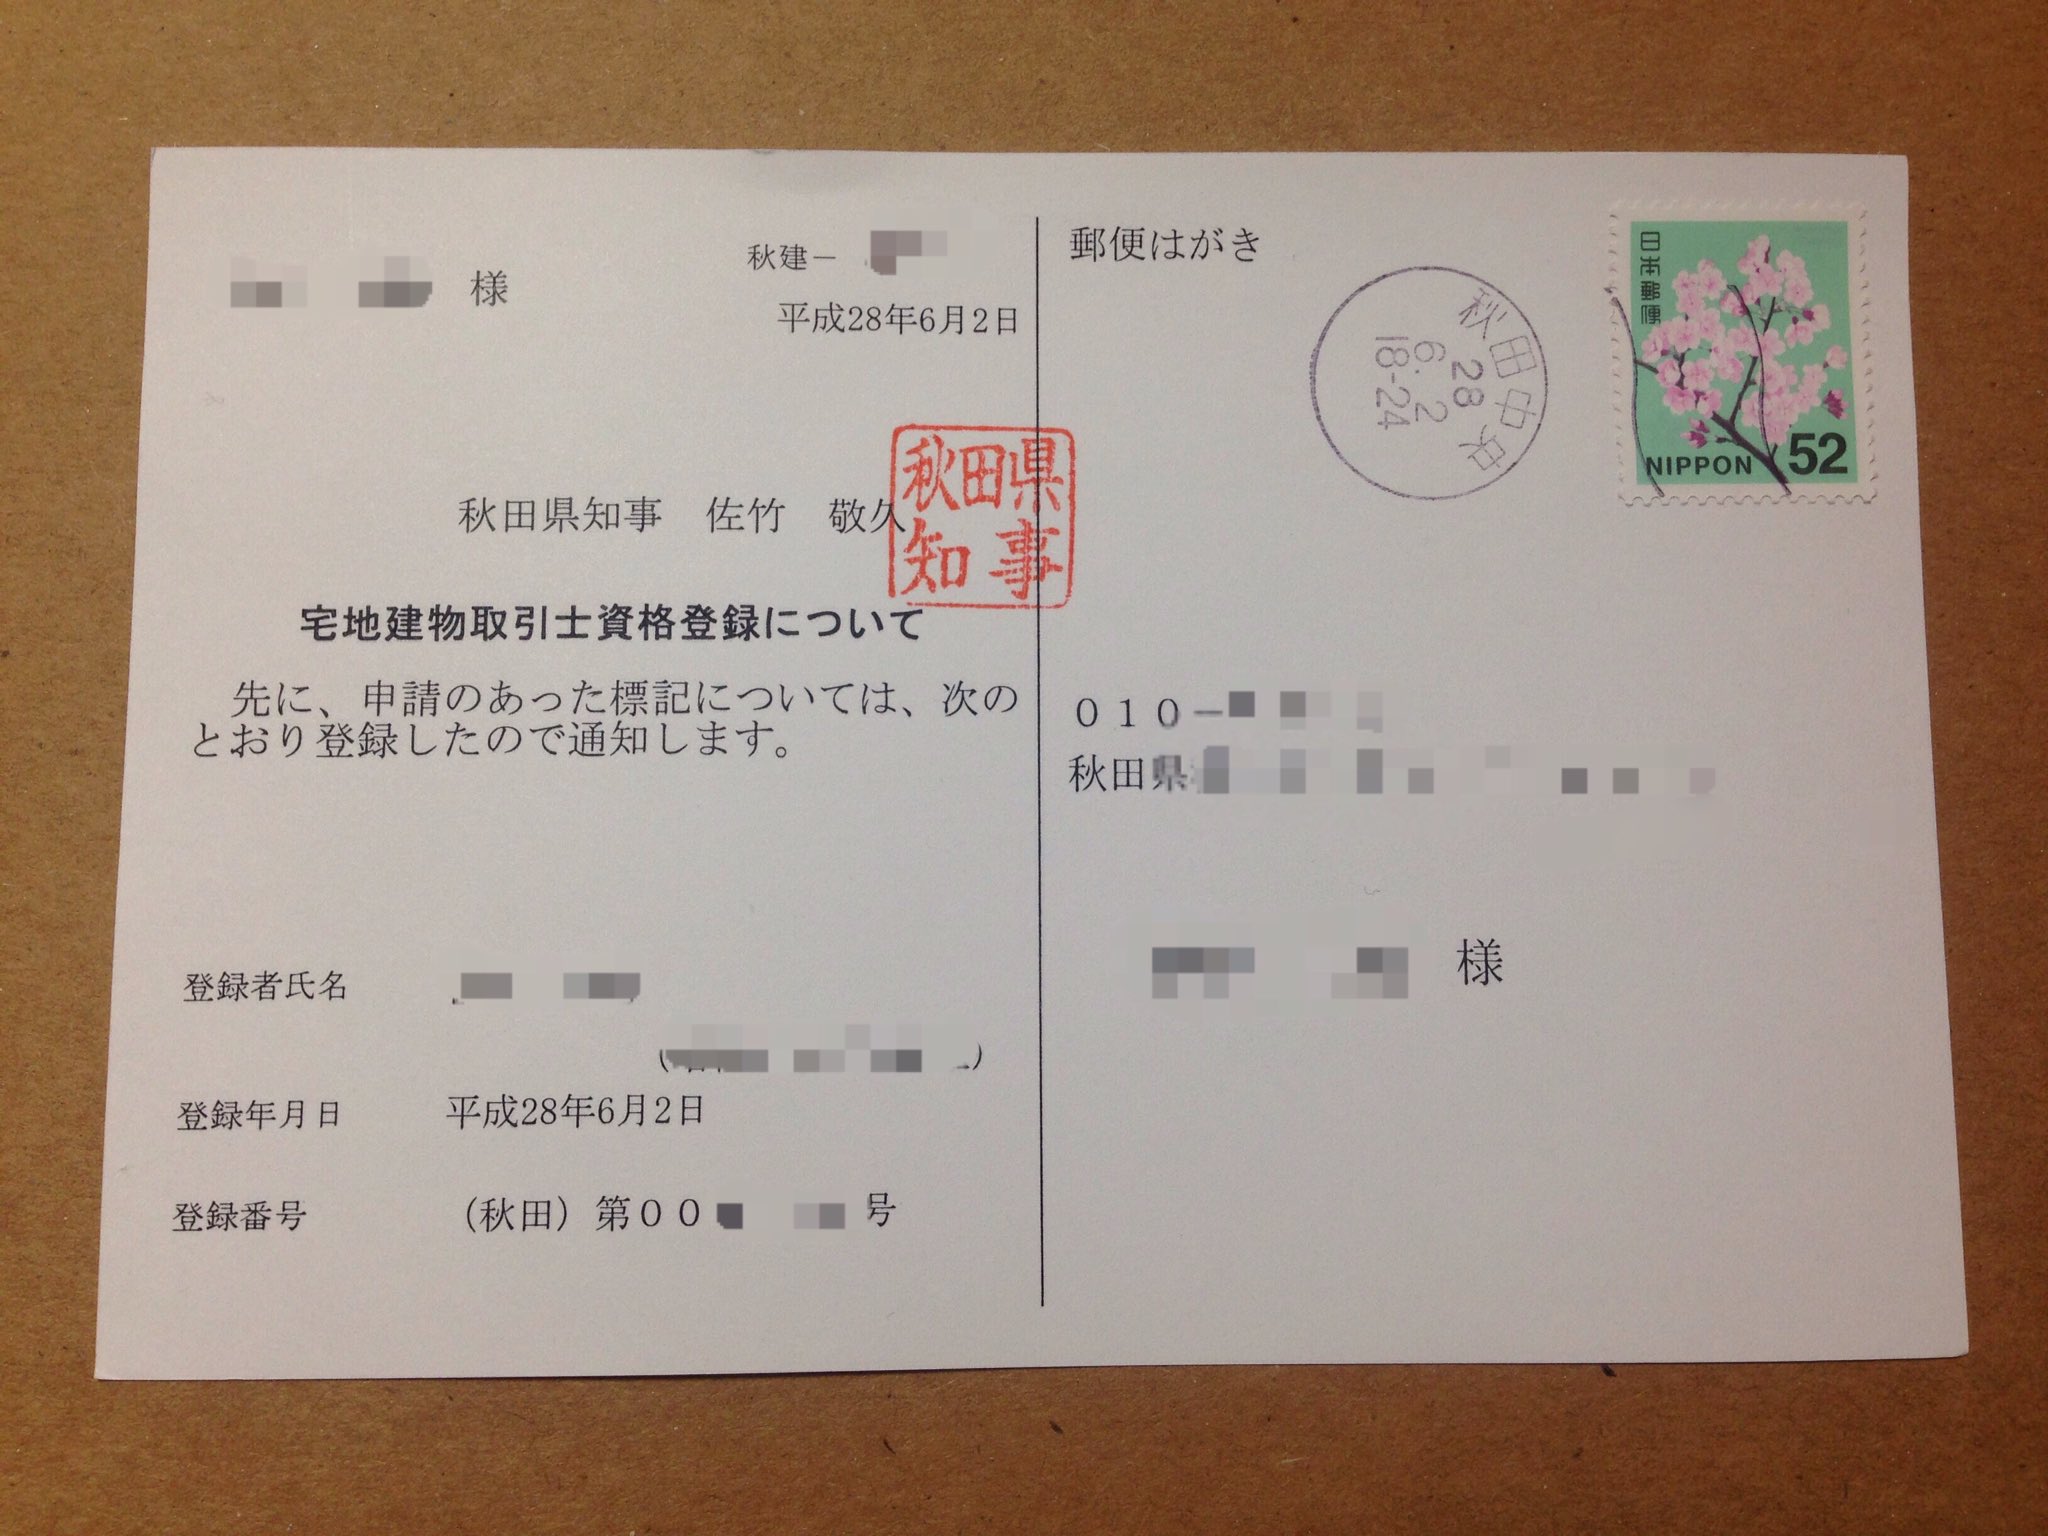 様
秋建－
平成28年6月2日
秋田県知事　佐竹　敬久
秋田県
知事
宅地建物取引士資格登録について
先に、申請のあった標記については、次の
とおり登録したので通知します。
登録者氏名
登録年月日　平成28年6月2日
登録番号　（秋田）第００　号
郵便はがき
秋田中央
28
6.2
18-24
日本郵便
NIPPON 52
０１０－
秋田県
様